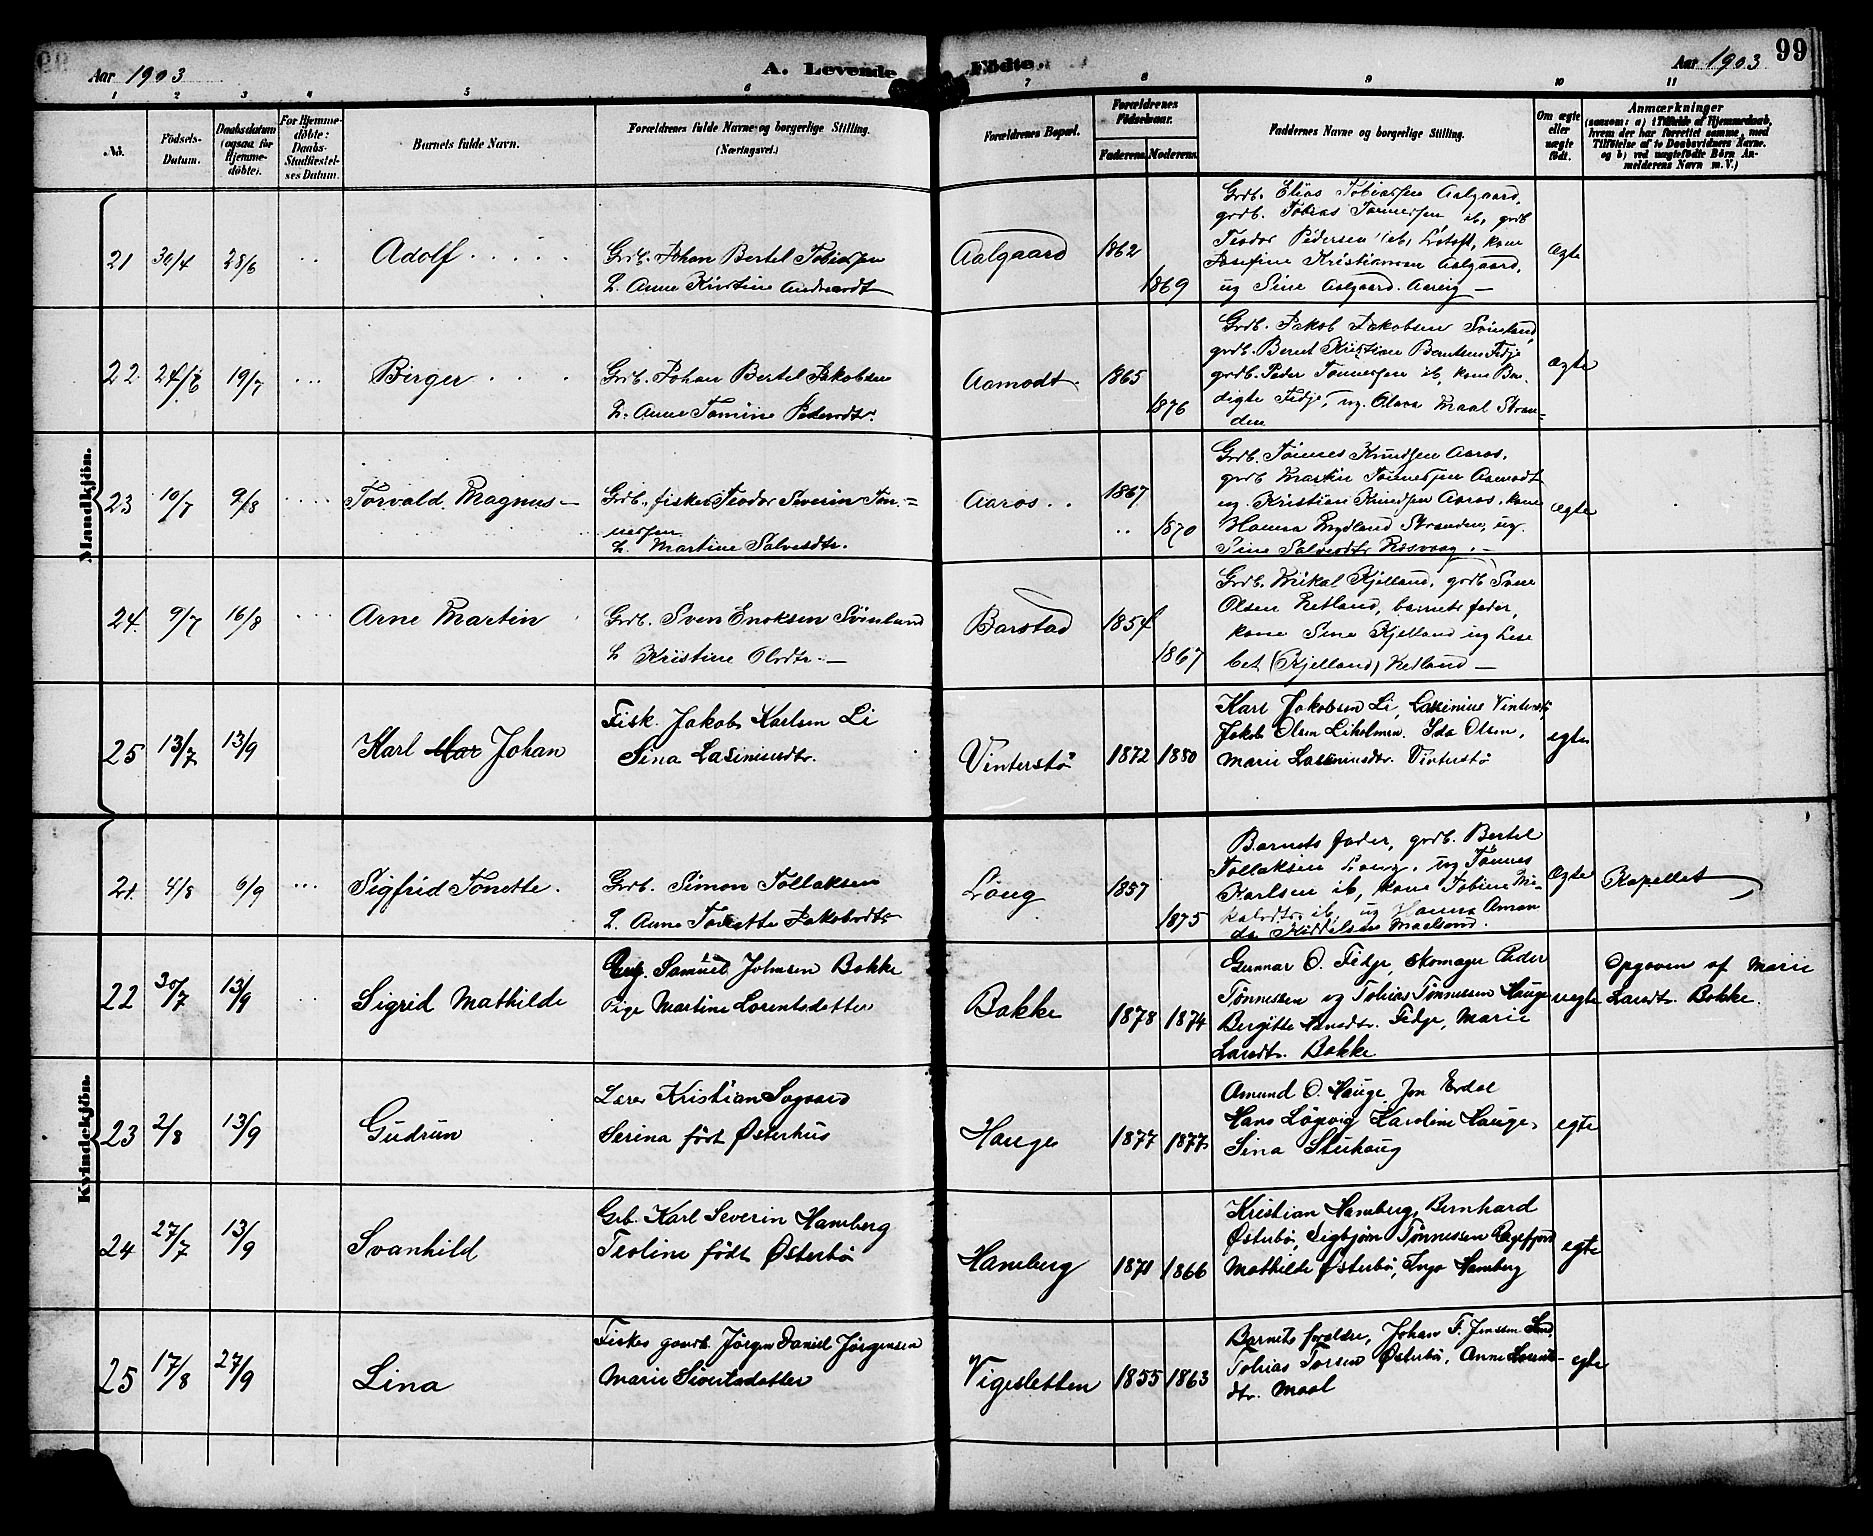 Aar 1903
A. Levende Födte.
Aar 1903
99
1 2 3 4 5 6 7 8 9 10 11
No.
Födsels-Datum.
Daabsdatum (ogsaa for Hjemme-döbte).
For Hjemme-döbte: Daabs-Stadfæstel-ses Datum.
Barnets fulde Navn.
Forældrenes fulde Navne og borgerlige Stilling.
(Næringsvei.)
Forældrenes Bopæl.
Forældrenes Födselsaar.
Faderens. Moderens.
Faddernes Navne og borgerlige Stilling.
Om ægte eller uægte födt.
Anmærkninger
(saasom: a) i Tilfælde af Hjemmedaab, hvem der har forrettet samme, med Tilföielse af to Daabsvidners Navne, og b) ved uægtefödte Börn An-melderens Navn m. V.)
Mandkjön.
21 30/4 28/6 Adolf
Grdb. Johan Bertel Tobiassen
Anne Kirstine
Aalgaard 1862 1869
Grdb. Elias Tobiassen Aalgaard,
grdb. Tobias Tønnessen ib, grdb
Teodor Pedersen ib, kone
Josefine Kristiansen Aalgaard,
ug Sine Aalgaard.
ægte
22 19/7 Birger
Grdb. Johan Bertel Jakobsen
Anne Tomine Pedersdtr.
Aamodt. 1865 1876
Grdb. Jakob Jakobsen Svinland,
grdb. Bernt Kristian Berntsen Fidje
grdb. Peder Tønnessen ib, kone Ben-
digte Fidje, ug. Olava Maal Stran-
den
ægte
23 10/7 9/8 Torvald Magnus
Grdb., fisker Teodor Severin Tøn-
nessen
Martine Salvesdtr.
Aaros 1867 1870
Grdb. Tønnes Knudsen Aaros,
grdb Martin Tønnessen Aamodt
ug. Kristian Knudsen Aaros, kone
Hanna Stranden, ug.
Sine Salvesdtr. Rosvaag.
ægte
24. 9/7 16/8 Arne Martin
Grdb. Sven Enoksen Svinland
Kristine Olsdtr.
Barstad 1854 1867
Grdb. Mikal Kjelland, grdb Sven
Olsen Netland, barnets fader,
kone Sine Kjelland ug Lise
bet (Kjelland) Netland
25 13/7 13/9 Karl Johan
Fisk. Jakob Karlsen Li
Sina Lasiniusdtr.
Vinterstø 1872 1880
Karl Jakobsen Li, Lasinius Vinterstø,
Jakob Olsen Liholmen. Ida Olsen,
Marie Lasiniusdtr. Vinterstø
egte
Kvindekjön.
21. 4/8 6/9 Sigfrid Tonette.
Grdb. Simon Tollaksen
Anne Tonette Jakobsdtr
Løug 1857 1875
Barnets fader, grdb. Bertel
Tollaksen Loug, ug Tønnes
Karlsen ib, kone Tobine Mi-
kalsdtr. ib, ug Hanna Aman
da
ægte
Kapellet
22 30/7 13/9 Sigrid Mathilde
Ungk. Samuel Johnsen Bakke
Pige Martine Lorentsdetter
Bakke 1878 1874
Gunnar O. Fidje, Skomager Peder
Tønnessen og Tobias Tønnessen Hauge
Bergitte Fidje, Marie
Larsdtr. Bakke
uegte
Opgaven af Marie
Larsdtr. Bakke.
23 2/8 13/9 Gudrun
Lærer Kristian Sogaard
Serina født Østerhus
Hauge 1877 1877
Amund O. Hauge, Jon Erdal
Hans Løgvig Karoline Hauge,
Sina Stuhaug
egte
24 27/7 13/9 Svanhild
Grb. Karl Severin Hamberg
Teoline født Østerbø
Hamberg 1870 1866
Kristian Hamberg, Bernhard
Østerbø, Sigbjørn Tønnessen
Mathilde Østerbø, Inga Hamberg
egte
25 17/8 27/9 Lina
Fisker gaardb. Jørgen Daniel Jørgensen
Marie Sivertsdatter
Vigesletten 1855 1863
Barnets forældre, Johan F. Jenssen
Tobias Torsen Østerbø, Anne Lorents-
dtr. Maal
egte